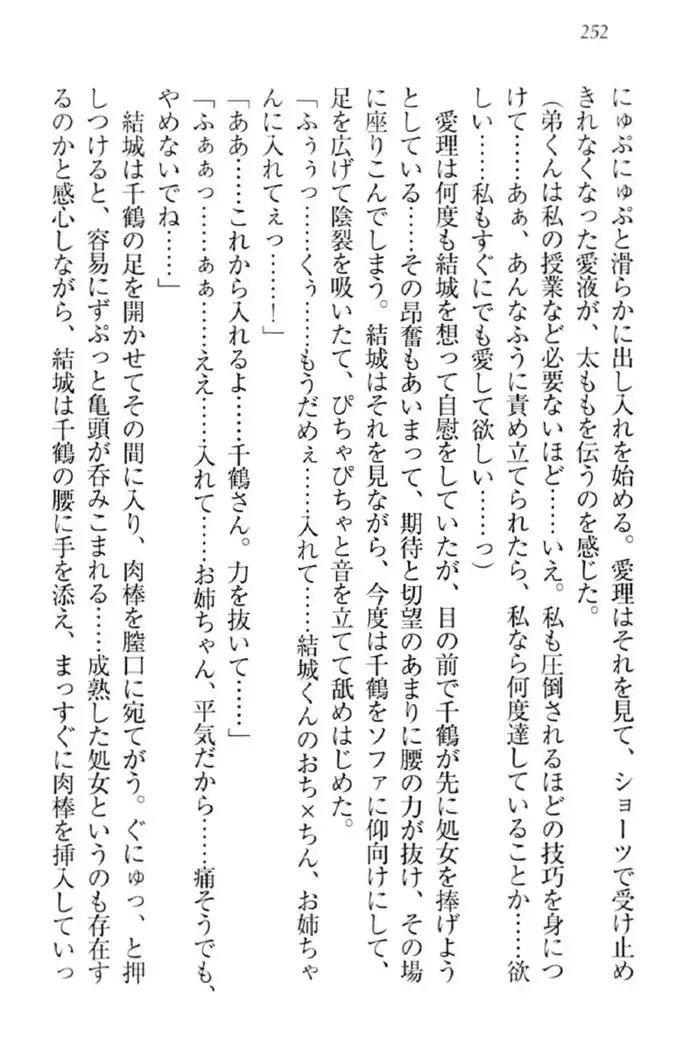 252
にゅぷにゅぷと滑らかに出し入れを始める。愛理はそれを見て、ショーツで受け止め
きれなくなった愛液が、太ももを伝うのを感じた。
（弟くんは私の授業など必要ないほど……いえ。私も圧倒されるほどの技巧を身につ
けて……あぁ、あんなふうに責め立てられたら、私なら何度達していることか……欲
しい……私もすぐにでも愛して欲しい……っ）
愛理は何度も結城を想って自慰をしていたが、目の前で千鶴が先に処女を捧げよう
としている……その昂奮もあいまって、期待と切望のあまりに腰の力が抜け、その場
に座りこんでしまう。結城はそれを見ながら、今度は千鶴をソファに仰向けにして、
足を広げて陰裂を吸いたて、ぴちゃぴちゃと音を立てて舐めはじめた。
「ふぅぅっ……くぅ……もうだめぇ……入れて……結城くんのおち×ちん、お姉ちゃ
んに入れてぇっ……！」
「ああ……これから入れるよ……千鶴さん。力を抜いて……」
「ふぁぁっ……ぁぁ……ええ……入れて……お姉ちゃん、平気だから……痛そうでも、
やめないでね……」
結城は千鶴の足を開かせてその間に入り、肉棒を膣口に宛てがう。ぐにゅっ、と押
しつけると、容易にずぷっと亀頭が呑みこまれる……成熟した処女というのも存在す
るのかと感心しながら、結城は千鶴の腰に手を添え、まっすぐに肉棒を挿入していっ